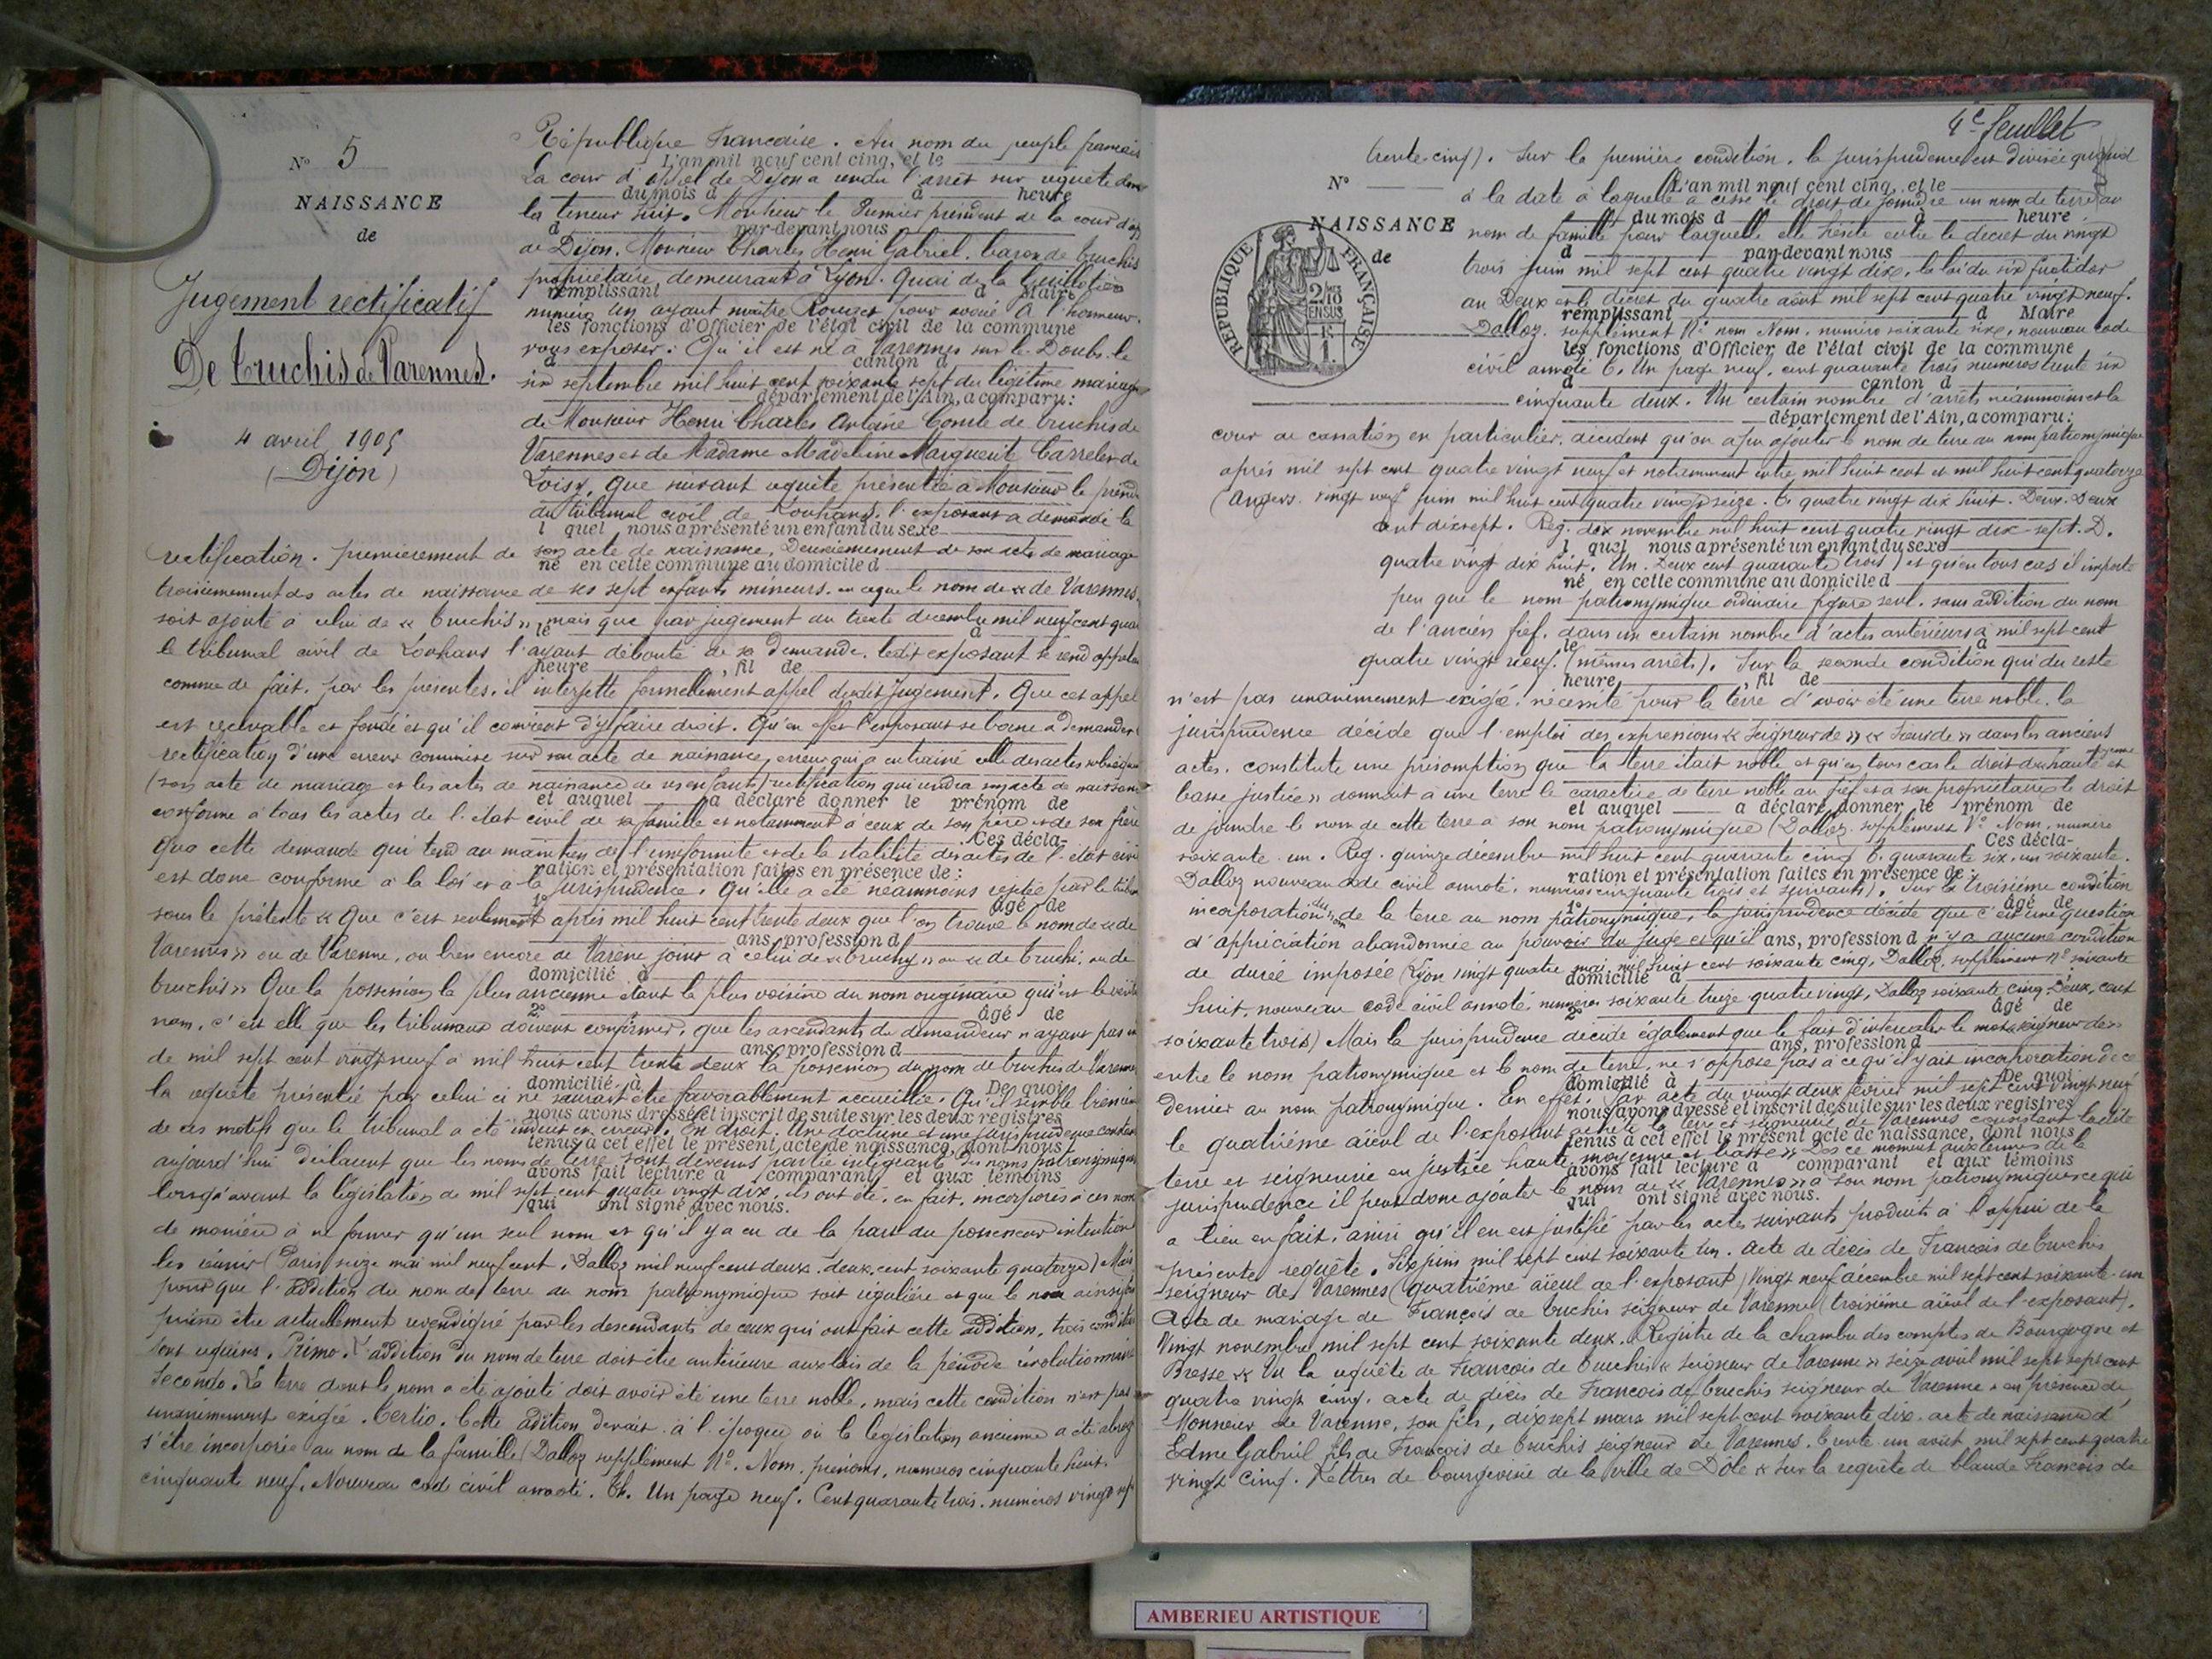 N° 5
NAISSANCE
de
Jugement rectificatif
De Truchis de Varennes.
4 avril 1905
(Dijon)
République Francaise. Au nom du peuple francais
L'an mil neuf cent cinq, et le
La cour d'appel de Dijon a rendu l'arrêt sur requête dont
du mois d à heure
la teneur suit. Monsieur le Premier président de la cour d'ap
d par-devant nous
de Dijon. Monsieur Charles Henri Gabriel, baron de Truchis
propriétaire, demeurant à Lyon. Quai de la Guillotière
remplissant d Maire
numéro un ayant maître Rouget pour avoué a l'honneur
les fonctions d'Officier de l'état civil de la commune
vous exposer: Qu'il est né à Varennes sur le Doubs le
d canton d
six septembre mil huit cent soixante sept du légitime mariage
département de l'Ain, a comparu:
de Monsieur Henri Charles Antoine Comte de Truchis de
Varennes et de Madame Madeleine Marguerite Carrelet de
Loisy, que suivant requête présentée à Monsieur le présid
du tribunal civil de Louhans, l'exposant a demandé la
l quel nous a présenté un enfant du sexe
rectification. premièrement de son acte de naissance, Deuxièmement de son acte de mariage
né en cette commune au domicile d
troisièmement des actes de naissance de ses sept enfants mineurs, en ce que le nom de « de Varennes
soit ajouté à celui de « Truchis », mais que par jugement du trente décembre mil neuf cent quat
le à
le tribunal civil de Louhans l'ayant débouté de sa demande, ledit exposant se rend appelan
heure , fil de
comme de fait, par les présentes, il interjette formellement appel dudit jugement. Que cet appel
est recevable et fondé et qu'il convient d'y faire droit. Qu'en effet l'exposant se borne à demander
rectification d'une erreur commise sur son acte de naissance, erreur qui a entraîné celle des actes subséquen
(son acte de mariage et les actes de naissance de ses enfants) rectification qui rendra son acte de naissan
et auquel a déclaré donner le prénom de
conforme à tous les actes de l'état civil de sa famille et notamment à ceux de son père et de son frère
Ces décla-
Que cette demande qui tend au maintien de l'uniformité et de la stabilité des actes de l'état civil
ration et présentation faites en présence de :
est donc conforme à la loi et à la jurisprudence. Qu'elle a été néanmoins rejetée par le tribu
1° âgé de
sous le prétexte « Que c'est seulement après mil huit cent trente deux que l'on trouve le nom de « de
ans, profession d
Varennes » ou de Varenne, ou bien encore de Varene joint à celui de « Truchy » ou « de Truchi, ou de
domicilié à
Truchis » Que la possession la plus ancienne étant la plus voisine du nom originaire qui est le vérita
2° âgé de
nom, c'est elle que les tribunaux doivent confirmer, que les ascendants du demandeur n'ayant pas eu
ans, profession d
de mil sept cent vingt neuf à mil huit cent trente deux la possession du nom de Truchis de Varennes
domicilié à De quoi
la requête présentée par celui ci ne saurait être favorablement accueillie. Qu'il semble bien
nous avons dressé et inscrit de suite sur les deux registres
de ces motifs que le tribunal a été induit en erreur. En droit. Une doctrine et une jurisprudence constan
tenus à cet effet le présent acte de naissance, dont nous
aujourd'hui déclarent que les noms de terre sont devenus partie intégrante des noms patronymiques
avons fait lecture à comparant et aux témoins
lorsqu'avant la législation de mil sept cent quatre vingt dix, ils ont été, en fait, incorporés à ces noms
qui ont signé avec nous.
de manière à ne former qu'un seul nom et qu'il y a eu de la part du possesseur intention
les réunir (Paris, seize mai mil neuf cent. Dalloz mil neuf cent deux. deux. cent soixante quatorze) Mais
pour que l'addition du nom de terre au nom patronymique soit régulière et que le nom ainsi
puisse être actuellement revendiqué par les descendants de ceux qui ont fait cette addition, trois conditio
sont requises. Primo. L'addition du nom de terre doit être antérieure aux lois de la période révolutionnaire
Secondo. La terre dont le nom a été ajouté doit avoir été une terre noble, mais cette condition n'est pas
unanimement exigée. Tertio. Cette adition devait à l'époque où la législation ancienne a été abrog
s'être incorporée au nom de la famille (Dalloz supplément V°. Nom. prénoms, numéros cinquante huit.
cinquante neuf. Nouveau code civil annoté. Un page neuf. Cent quarante trois. numéros vingt
4e feuillet
trente-cinq). Sur la première condition, la jurisprudence est divisée quand
N°
L'an mil neuf cent cinq, et le
à la date à laquelle a cessé le droit de joindre un nom de terre au
NAISSANCE
du mois d à heure
de
nom de famille pour laquelle elle hésite entre le décret du vingt
d par-devant nous
trois juin mil sept cent quatre vingt dix, la loi du six fructidor
an Deux et le décret du quatre août mil sept cent quatre vingt neuf.
remplissant d Maire
Dalloz. supplément V° nom Nom. numéro soixante six, nouveau code
les fonctions d'Officier de l'état civil de la commune
civil annoté T. Un page neuf. cent quarante trois numéros trente six
d canton d
cinquante deux. Un certain nombre d'arrêts néanmoins et la
département de l'Ain, a comparu:
RÉPUBLIQUE FRANÇAISE
2/10 EN SUS
1 F.
cour de cassation en particulier, décident qu'on a pu ajouter le nom de terre au nom patronymique
après mil sept cent quatre vingt neuf et notamment entre mil huit cent et mil huit cent quatorze
(Angers. vingt neuf juin mil huit cent quatre vingt seize. D. quatre vingt dix huit. Deux. Deux
cent dix sept. Req. dix novembre mil huit cent quatre vingt dix-sept. D.
l quel nous a présenté un enfant du sexe
quatre vingt dix huit. Un. Deux cent quarante trois) et qu'en tous cas il importe
né en cette commune au domicile d
peu que le nom patronymique ordinaire figure seul, sans addition du nom
de l'ancien fief, dans un certain nombre d'actes antérieurs à mil sept cent
le à
quatre vingt neuf. (mêmes arrêts). Sur la seconde condition qui du reste
heure , fil de
n'est pas unanimement exigée: nécessité pour la terre d'avoir été une terre noble, la
jurisprudence décide que l'emploi des expressions « Seigneur de » « Sieur de » dans les anciens
actes, constitute une présomption que la terre était noble et qu'en tous cas le droit de haute moyenne et
basse justice » donnait à une terre le caractère de terre noble au fief et à son propriétaire le droit
et auquel a déclaré donner le prénom de
de joindre le nom de cette terre à son nom patronymique (Dalloz. supplément V° Nom, numéro
Ces décla-
soixante un. Req. quinze décembre mil huit cent quarante cinq D. quarante six, un soixante.
ration et présentation faites en présence de :
Dalloz nouveau code civil annoté, numéros cinquante trois et suivants). Sur la troisième condition
1° âgé de
incorporation du nom de la terre au nom patronymique, la jurisprudence décide que c'est une question
d'appréciation abandonnée au pouvoir du juge et qu'il n'y a aucune condition
ans, profession d
de durée imposée (Lyon vingt quatre mai mil huit cent soixante cinq, Dalloz. supplément n° soixante
domicilié à
huit, nouveau code civil annoté numéros soixante treize quatre vingt, Dalloz soixante cinq. Deux, cent
2° âgé de
soixante trois) Mais la jurisprudence décide également que le fait d'intercaler le mot « seigneur de »
ans, profession d
entre le nom patronymique et le nom de terre, ne s'oppose pas à ce qu'il y ait incorporation de ce
domicilié à De quoi
dernier au nom patronymique. En effet, par acte du vingt deux février mil sept cent vingt neuf
nous avons dressé et inscrit de suite sur les deux registres
le quatrième aïeul de l'exposant achète la terre et seigneurie de Varennes consistant ladite
tenus à cet effet le présent acte de naissance, dont nous
terre et seigneurie en justice haute, moyenne et basse » Dès ce moment aux termes de la
avons fait lecture à comparant et aux témoins
jurisprudence il peut donc ajouter le nom de « Varennes » à son nom patronymique ce qui
qui ont signé avec nous.
a lieu en fait, ainsi qu'il en est justifié par les actes suivants produits à l'appui de la
présente requête. Six juin mil sept cent soixante un. Acte de décès de Francois de Truchis
seigneur de Varennes (quatrième aïeul de l'exposant) Vingt neuf décembre mil sept cent soixante-un
Acte de mariage de François de Truchis seigneur de Varenne (troisième aïeul de l'exposant).
Vingt novembre mil sept cent soixante deux. Registre de la chambre des comptes de Bourgogne et
Bresse « Vu la requête de Francois de Truchis « seigneur de Varenne » seize avril mil sept sept cent
quatre vingt cinq. acte de décès de Francois de Truchis seigneur de Varenne « en présence de
Monsieur de Varenne, son fils, dix sept mars mil sept cent soixante dix. acte de naissance d'
Edme Gabriel fils de François de Truchis seigneur de Varennes. Trente un août mil sept cent quatre
vingt cinq. Lettres de bourgeoisie de la ville de Dôle « Sur la requête de Claude Francois de
AMBERIEU ARTISTIQUE